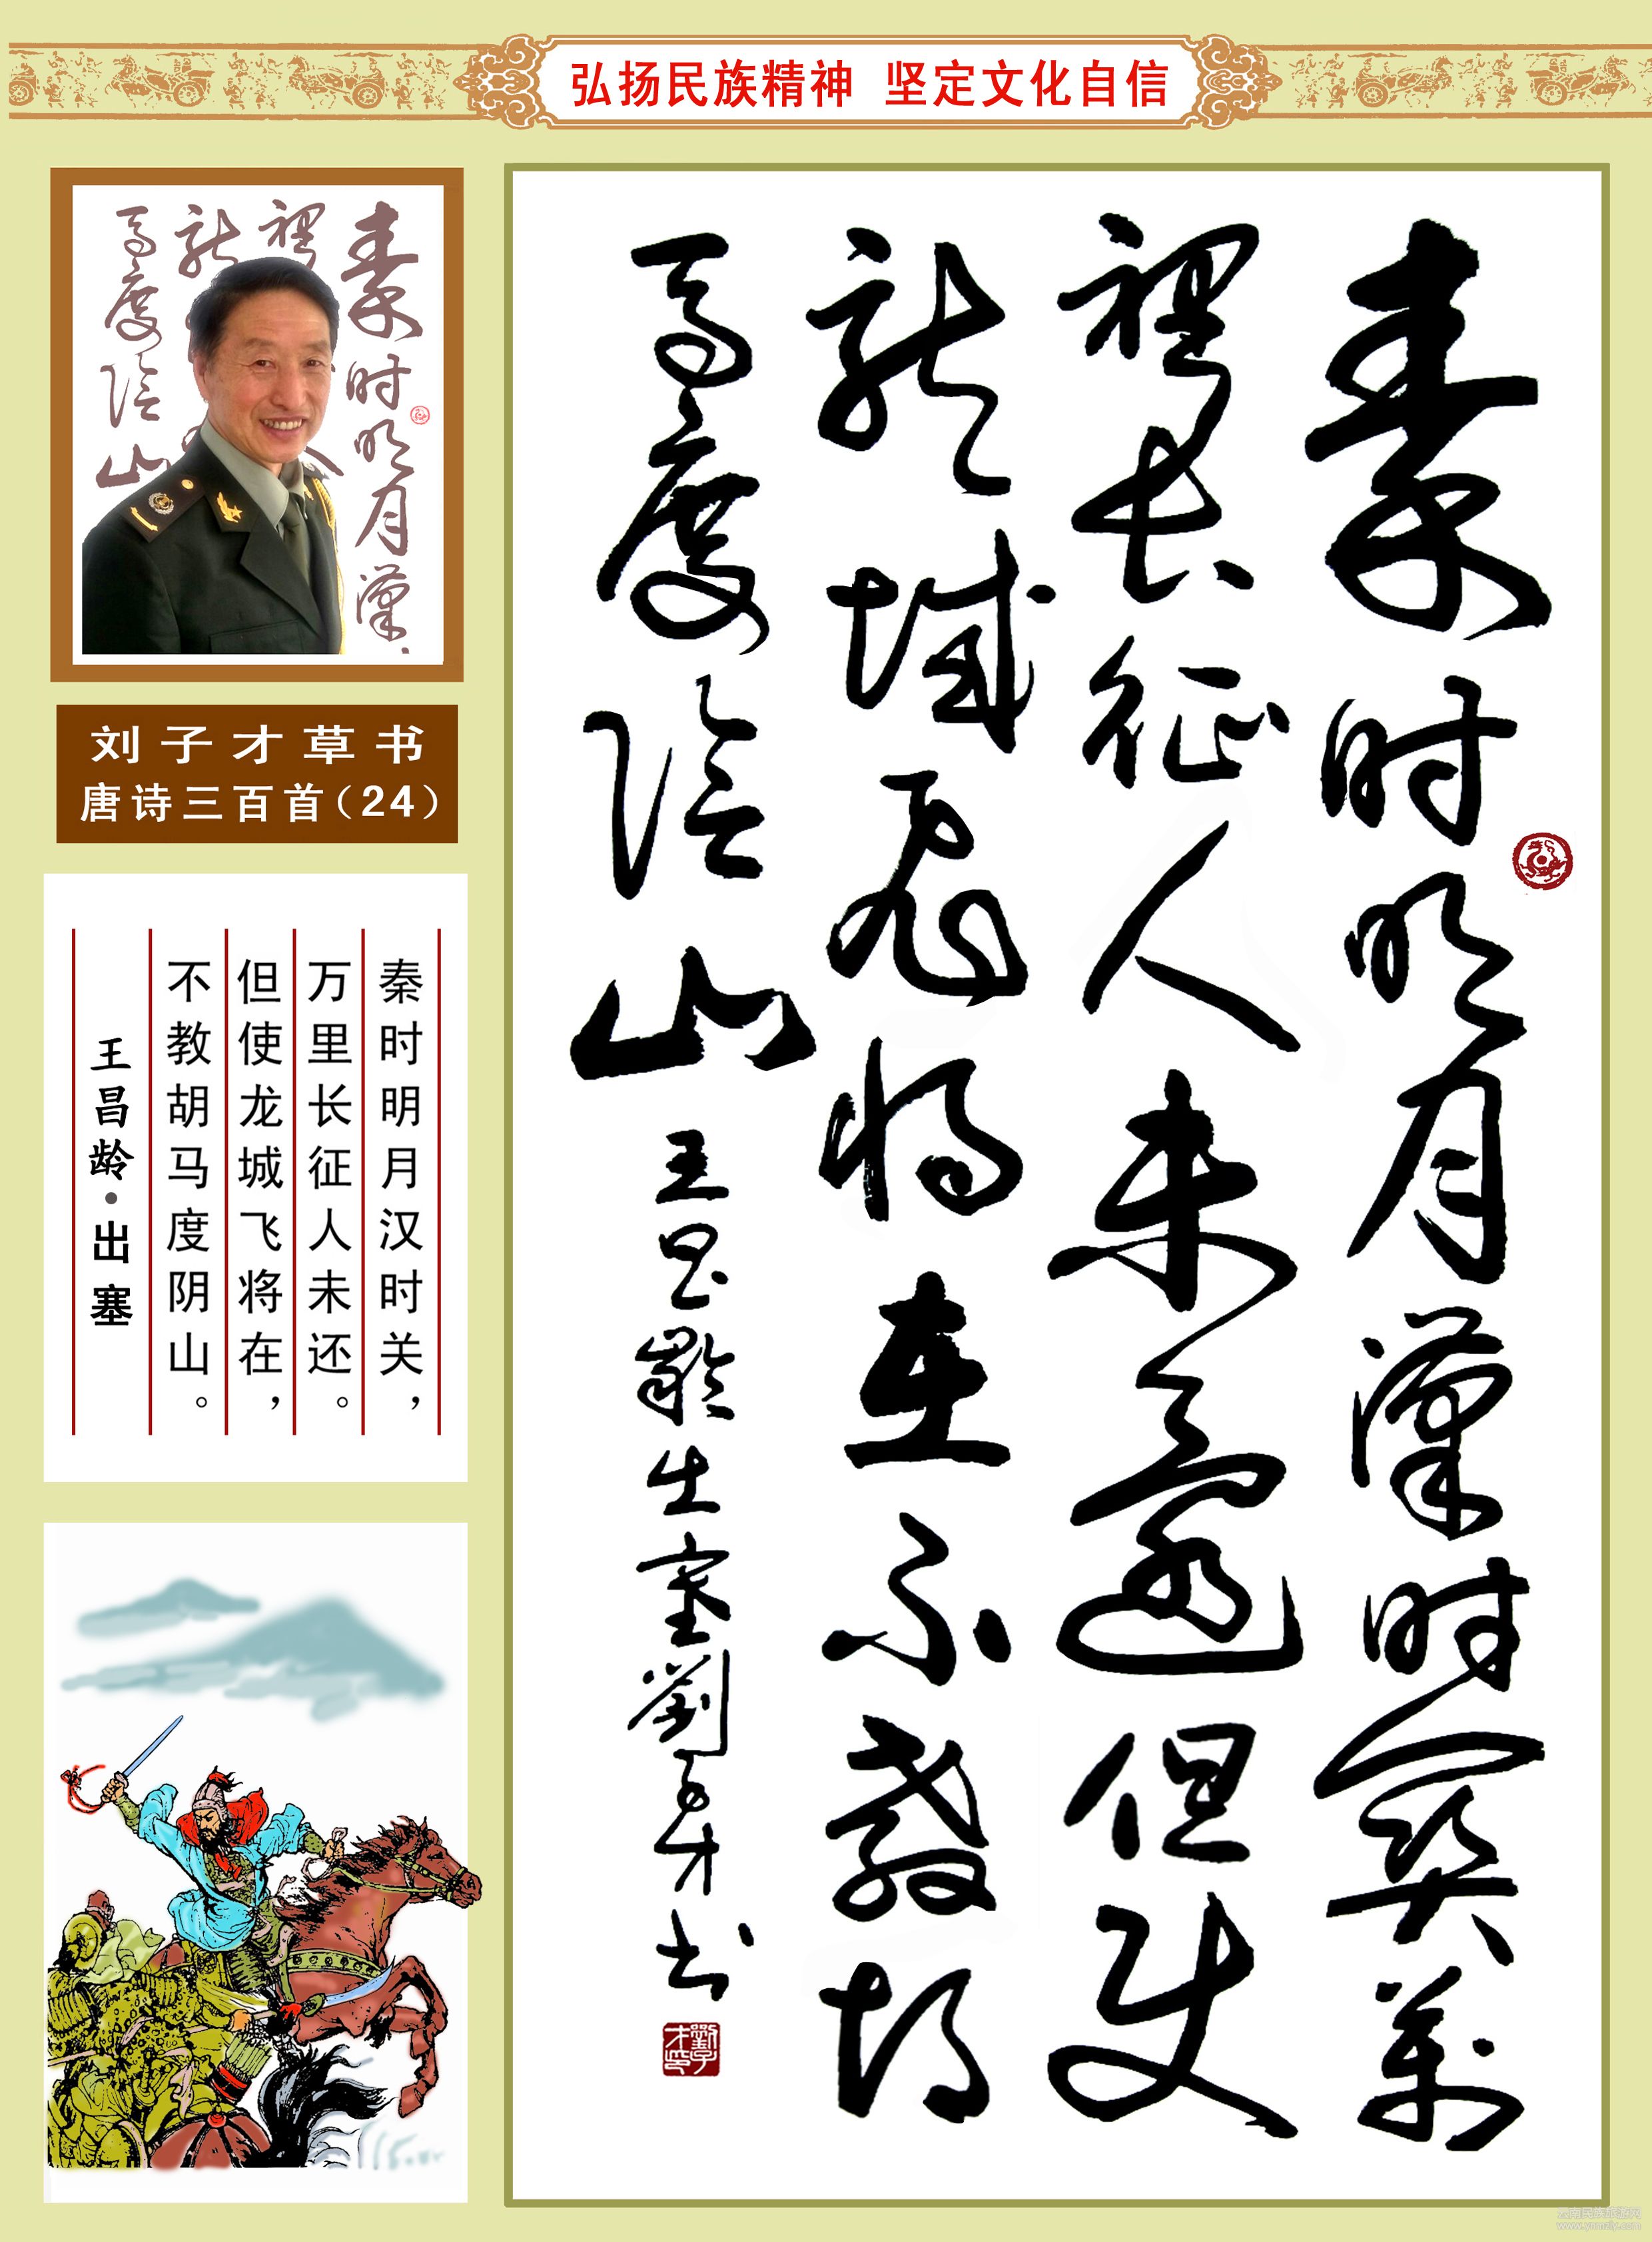 弘扬民族精神 坚定文化自信
秦时明月漢时関萬
裡长征人未還但使
龙城飛将在不教胡
马度陰山 王昌齡出塞劉子才书
劉子才印
刘子才草书
唐诗三百首(24)
秦时明月汉时关，
万里长征人未还。
但使龙城飞将在，
不教胡马度阴山。
王昌龄·出塞